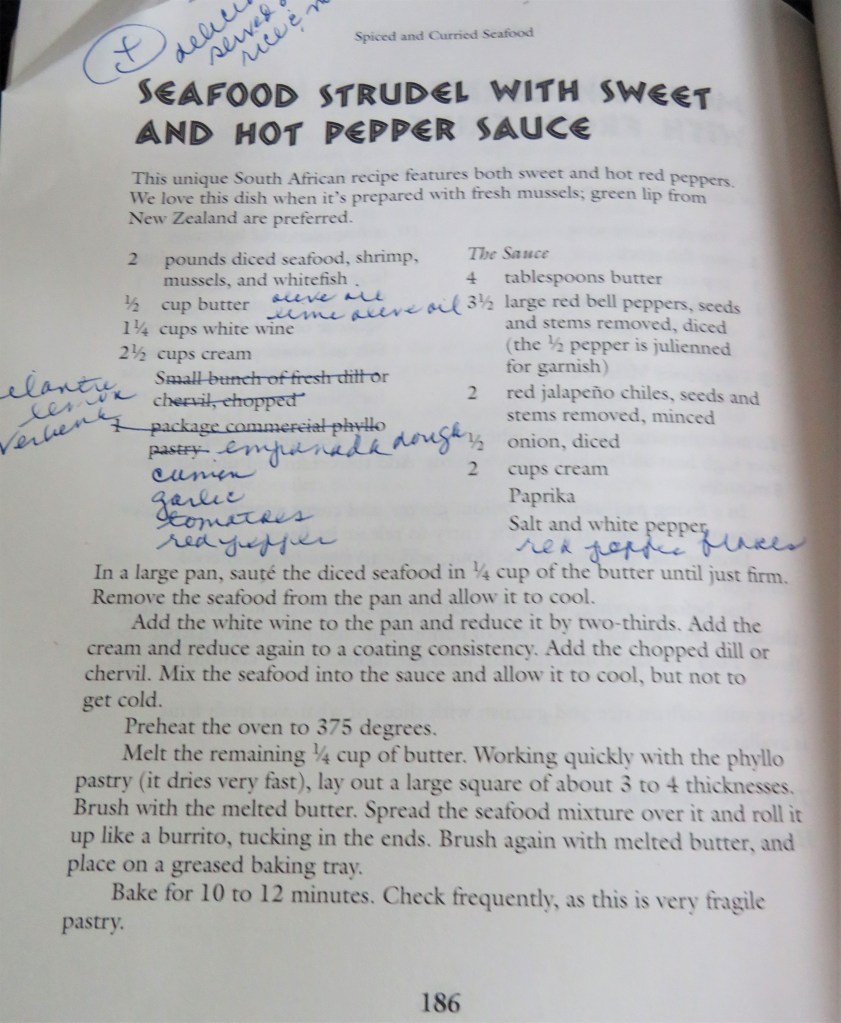 +
served
rice &
Spiced and Curried Seafood
SEAFOOD STRUDEL WITH SWEET
AND HOT PEPPER SAUCE
This unique South African recipe features both sweet and hot red peppers.
We love this dish when it's prepared with fresh mussels; green lip from
New Zealand are preferred.
2 pounds diced seafood, shrimp,
mussels, and whitefish
½ cup butter olive oil
lime olive oil
1¼ cups white wine
2½ cups cream
Small bunch of fresh dill or
chervil, chopped
cilantro
lemon
verbena
1 package commercial phyllo
pastry empanada dough
cumin
garlic
tomatoes
red pepper
The Sauce
4 tablespoons butter
3½ large red bell peppers, seeds
and stems removed, diced
(the ½ pepper is julienned
for garnish)
2 red jalapeño chiles, seeds and
stems removed, minced
½ onion, diced
2 cups cream
Paprika
Salt and white pepper
red pepper flakes
In a large pan, sauté the diced seafood in ¼ cup of the butter until just firm.
Remove the seafood from the pan and allow it to cool.
Add the white wine to the pan and reduce it by two-thirds. Add the
cream and reduce again to a coating consistency. Add the chopped dill or
chervil. Mix the seafood into the sauce and allow it to cool, but not to
get cold.
Preheat the oven to 375 degrees.
Melt the remaining ¼ cup of butter. Working quickly with the phyllo
pastry (it dries very fast), lay out a large square of about 3 to 4 thicknesses.
Brush with the melted butter. Spread the seafood mixture over it and roll it
up like a burrito, tucking in the ends. Brush again with melted butter, and
place on a greased baking tray.
Bake for 10 to 12 minutes. Check frequently, as this is very fragile
pastry.
186